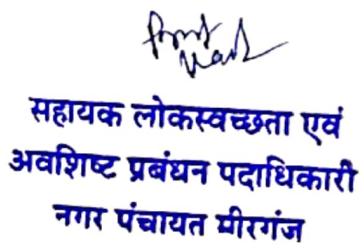 सहायक लोकस्वच्छता एवं
अवशिष्ट प्रबंधन पदाधिकारी
नगर पंचायत मीरगंज